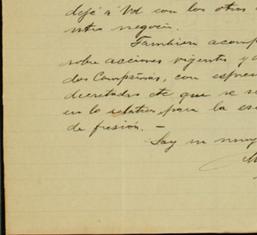 dejé á Vd con los otros
ntro negocio.
Tambien acomp
sobre acciones vigentes y
dos Compañias, con espres
decretados etc que se se
en lo relativo para la es
de fusión. —
Soy su muy